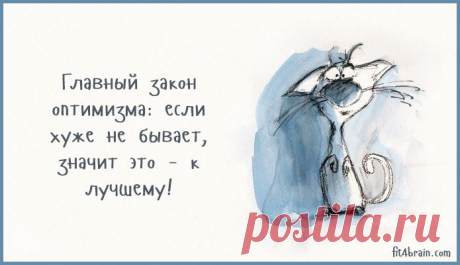 Главный закон
оптимизма: если
хуже не бывает,
значит это - к
лучшему!
postila.ru
fit4brain.com